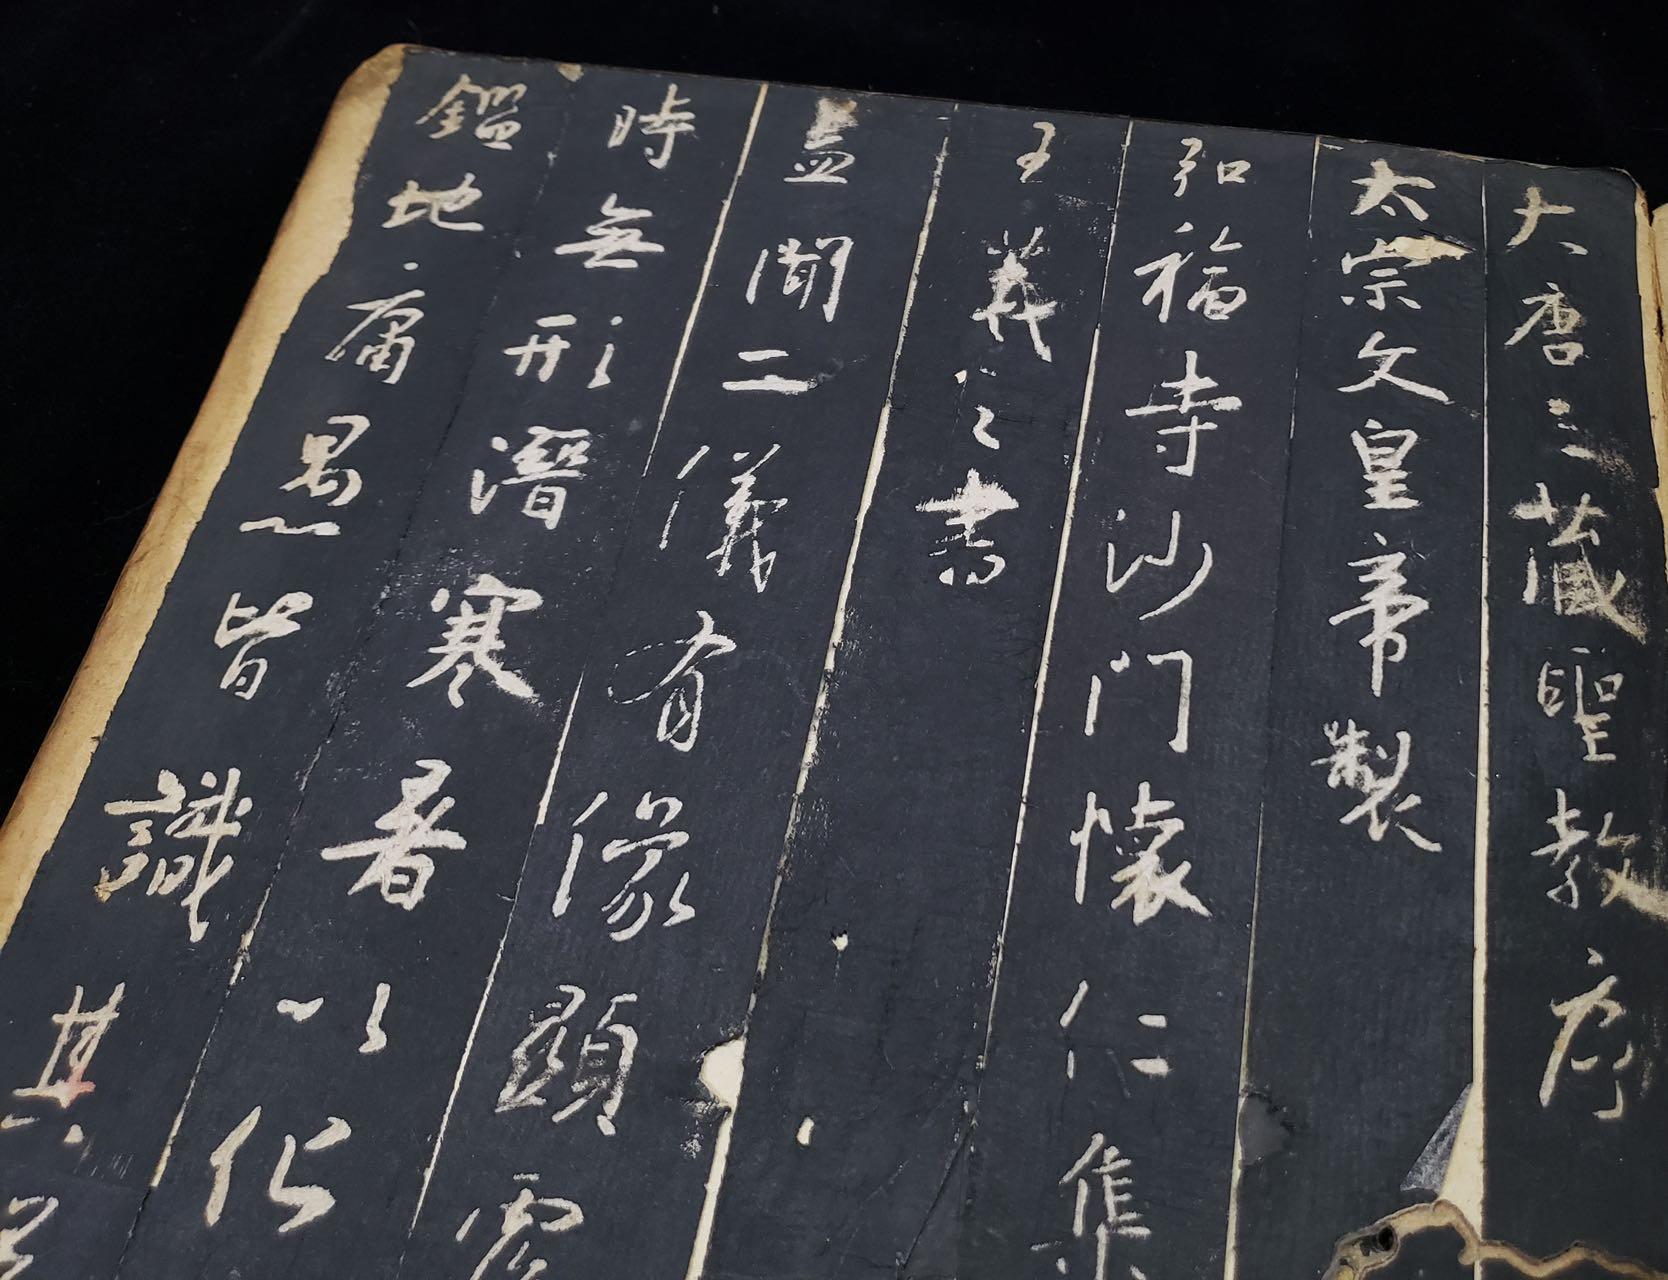 大唐三藏聖教序
太宗文皇帝製
弘福寺沙門懷仁集
王羲之書
盖聞二儀有像顯覆
時無形潛寒暑以化
鑑地庸愚皆識其